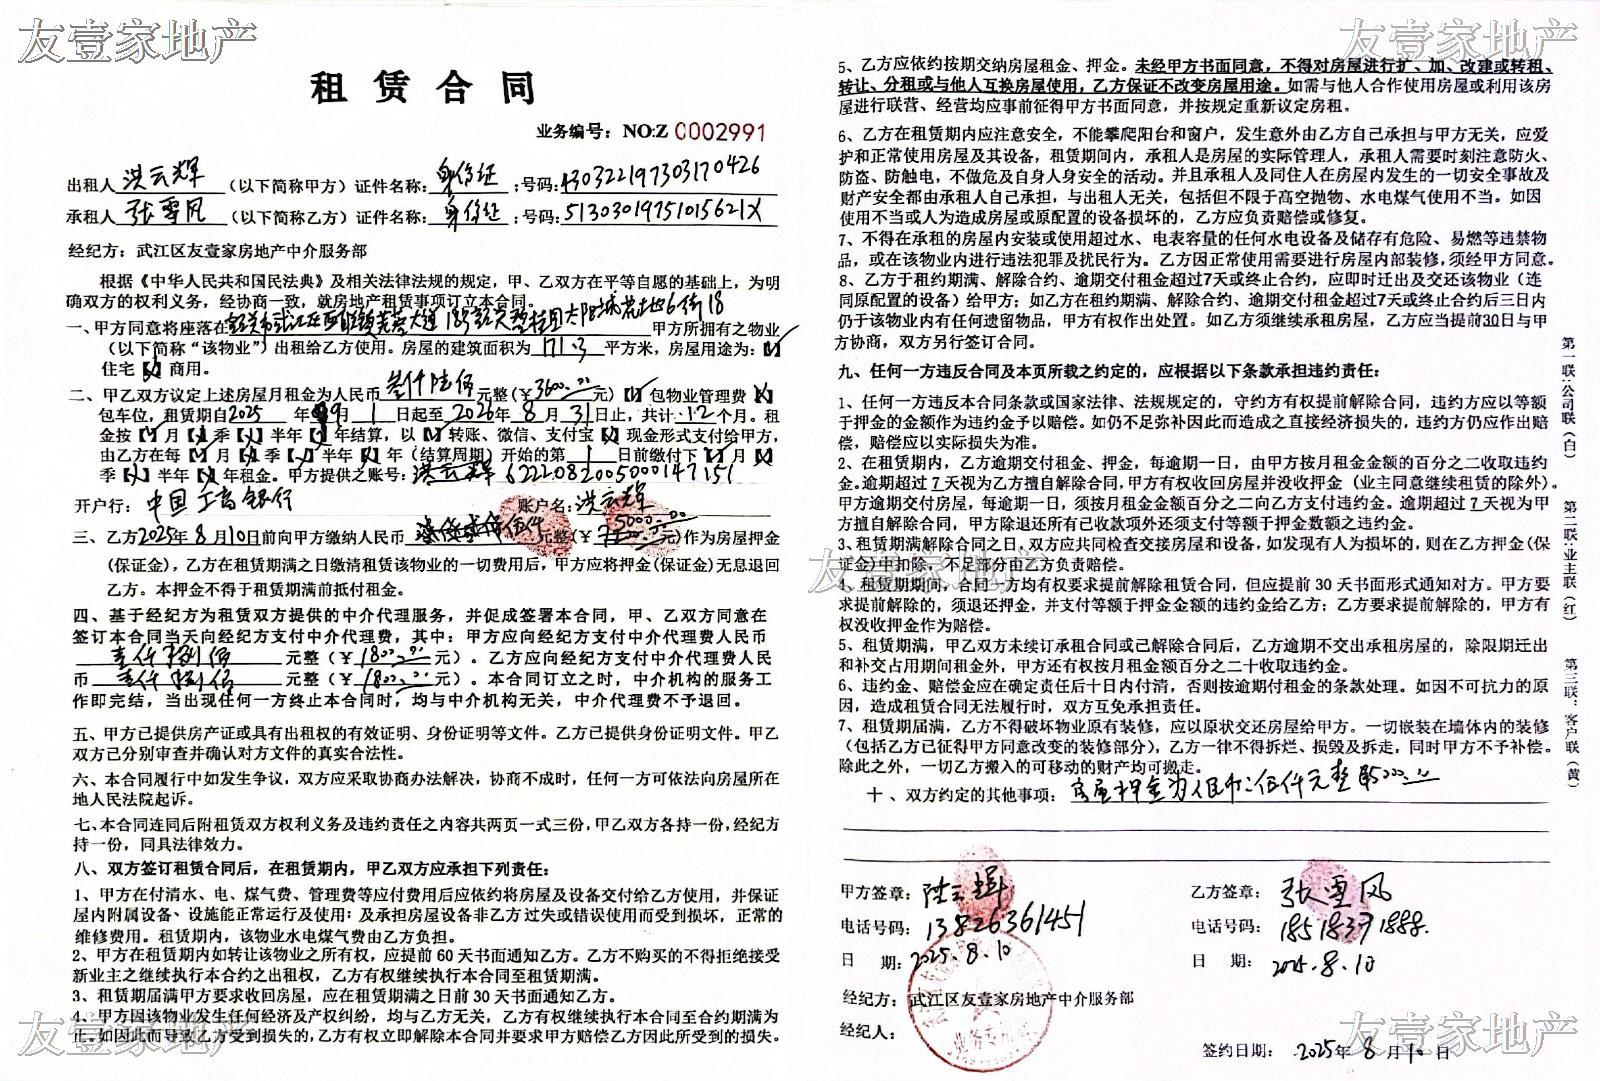 友壹家地产
友壹家地产
租赁合同
业务编号：NO:Z 0002991
出租人 洪云辉 （以下简称甲方）证件名称：身份证；号码：430322197303170426
承租人 张雪风 （以下简称乙方）证件名称：身份证；号码：51303019751015621X
经纪方：武江区友壹家房地产中介服务部
根据《中华人民共和国民法典》及相关法律法规的规定，甲、乙双方在平等自愿的基础上，为明
确双方的权利义务，经协商一致，就房地产租赁事项订立本合同。
一、甲方同意将座落在 韶关市武江区西联镇芙蓉大道18号韶关碧桂园太阳城花地6街18 甲方所拥有之物业
（以下简称“该物业”）出租给乙方使用。房屋的建筑面积为 171.3 平方米，房屋用途为：【✓】
住宅【✗】商用。
二、甲乙双方议定上述房屋月租金为人民币 叁仟陆佰 元整（￥3600.00元）【✓】包物业管理费【✗】
包车位，租赁期自2025年9月1日起至2026年8月31日止，共计12个月。租
金按【✓】月【✗】季【✗】半年【✗】年结算，以【✓】转账、微信、支付宝【✗】现金形式支付给甲方，
由乙方在每【✓】月【✗】季【✗】半年【✗】年（结算周期）开始的第 1 日前缴付下【✓】月【✗】
季【✗】半年【✗】年租金。甲方提供之账号：洪云辉 6222082005000147151
开户行：中国工商银行 账户名：洪云辉
三、乙方2025年8月10日前向甲方缴纳人民币 伍仟 元整（￥5000.00元）作为房屋押金
（保证金），乙方在租赁期满之日缴清租赁该物业的一切费用后，甲方应将押金（保证金）无息退回
乙方。本押金不得于租赁期满前抵付租金。
四、基于经纪方为租赁双方提供的中介代理服务，并促成签署本合同，甲、乙双方同意在
签订本合同当天向经纪方支付中介代理费，其中：甲方应向经纪方支付中介代理费人民币
壹仟捌佰 元整（￥1800.00元）。乙方应向经纪方支付中介代理费人民
币 壹仟捌佰 元整（￥1800.00元）。本合同订立之时，中介机构的服务工
作即完结，当出现任何一方终止本合同时，均与中介机构无关，中介代理费不予退回。
五、甲方已提供房产证或具有出租权的有效证明、身份证明等文件。乙方已提供身份证明文件。甲乙
双方已分别审查并确认对方文件的真实合法性。
六、本合同履行中如发生争议，双方应采取协商办法解决，协商不成时，任何一方可依法向房屋所在
地人民法院起诉。
七、本合同连同后附租赁双方权利义务及违约责任之内容共两页一式三份，甲乙双方各持一份，经纪方
持一份，同具法律效力。
八、双方签订租赁合同后，在租赁期内，甲乙双方应承担下列责任：
1、甲方在付清水、电、煤气费、管理费等应付费用后应依约将房屋及设备交付给乙方使用，并保证
屋内附属设备、设施能正常运行及使用：及承担房屋设备非乙方过失或错误使用而受到损坏，正常的
维修费用。租赁期内，该物业水电煤气费由乙方负担。
2、甲方在租赁期内如转让该物业之所有权，应提前60天书面通知乙方。乙方不购买的不得拒绝接受
新业主之继续执行本合约之出租权，乙方有权继续执行本合同至租赁期满。
3、租赁期届满甲方要求收回房屋，应在租赁期满之日前30天书面通知乙方。
4、甲方因该物业发生任何经济及产权纠纷，均与乙方无关，乙方有权继续执行本合同至合约期满为
止。如因此而导致乙方受到损失的，乙方有权立即解除本合同并要求甲方赔偿乙方因此所受到的损失。
5、乙方应依约按期交纳房屋租金、押金。未经甲方书面同意，不得对房屋进行扩、加、改建或转租、
转让、分租或与他人互换房屋使用，乙方保证不改变房屋用途。如需与他人合作使用房屋或利用该房
屋进行联营、经营均应事前征得甲方书面同意，并按规定重新议定房租。
6、乙方在租赁期内应注意安全，不能攀爬阳台和窗户，发生意外由乙方自己承担与甲方无关，应爱
护和正常使用房屋及其设备，租赁期间内，承租人是房屋的实际管理人，承租人需要时刻注意防火、
防盗、防触电，不做危及自身人身安全的活动。并且承租人及同住人在房屋内发生的一切安全事故及
财产安全都由承租人自己承担，与出租人无关，包括但不限于高空抛物、水电煤气使用不当。如因
使用不当或人为造成房屋或原配置的设备损坏的，乙方应负责赔偿或修复。
7、不得在承租的房屋内安装或使用超过水、电表容量的任何水电设备及储存有危险、易燃等违禁物
品，或在该物业内进行违法犯罪及扰民行为。乙方因正常使用需要进行房屋内部装修，须经甲方同意。
8、乙方于租约期满、解除合约、逾期交付租金超过7天或终止合约，应即时迁出及交还该物业（连
同原配置的设备）给甲方；如乙方在租约期满、解除合约、逾期交付租金超过7天或终止合约后三日内
仍于该物业内有任何遗留物品，甲方有权作出处置。如乙方须继续承租房屋，乙方应当提前30日与甲
方协商，双方另行签订合同。
九、任何一方违反合同及本页所载之约定的，应根据以下条款承担违约责任：
1、任何一方违反本合同条款或国家法律、法规规定的，守约方有权提前解除合同，违约方应以等额
于押金的金额作为违约金予以赔偿。如仍不足弥补因此而造成之直接经济损失的，违约方仍应作出赔
偿，赔偿应以实际损失为准。
2、在租赁期内，乙方逾期交付租金、押金，每逾期一日，由甲方按月租金金额的百分之二收取违约
金。逾期超过7天视为乙方擅自解除合同，甲方有权收回房屋并没收押金（业主同意继续租赁的除外）。
甲方逾期交付房屋，每逾期一日，须按月租金金额百分之二向乙方支付违约金。逾期超过7天视为甲
方擅自解除合同，甲方除退还所有已收款项外还须支付等额于押金数额之违约金。
3、租赁期满解除合同之日，双方应共同检查交接房屋和设备，如发现有人为损坏的，则在乙方押金（保
证金）中扣除，不足部分由乙方负责赔偿。
4、租赁期期间，合同一方均有权要求提前解除租赁合同，但应提前30天书面形式通知对方。甲方要
求提前解除的，须退还押金，并支付等额于押金金额的违约金给乙方；乙方要求提前解除的，甲方有
权没收押金作为赔偿。
5、租赁期满，甲乙双方未续订承租合同或已解除合同后，乙方逾期不交出承租房屋的，除限期迁出
和补交占用期间租金外，甲方还有权按月租金额百分之二十收取违约金。
6、违约金、赔偿金应在确定责任后十日内付清，否则按逾期付租金的条款处理。如因不可抗力的原
因，造成租赁合同无法履行时，双方互免承担责任。
7、租赁期届满，乙方不得破坏物业原有装修，应以原状交还房屋给甲方。一切嵌装在墙体内的装修
（包括乙方已征得甲方同意改变的装修部分），乙方一律不得拆烂、损毁及拆走，同时甲方不予补偿。
除此之外，一切乙方搬入的可移动的财产均可搬走。
十、双方约定的其他事项：房屋押金为人民币：伍仟元整 ￥5000.00
甲方签章：洪云辉
电话号码：13826361451
日 期：2025.8.10
乙方签章：张雪风
电话号码：18518371888.
日 期：2025.8.10
经纪方：武江区友壹家房地产中介服务部
经纪人：
业务专用章
签约日期：2025年8月10日
第一联：公司联（白） 第二联：业主联（红） 第三联：客户联（黄）
友壹家地产
友壹家地产
友壹家地产